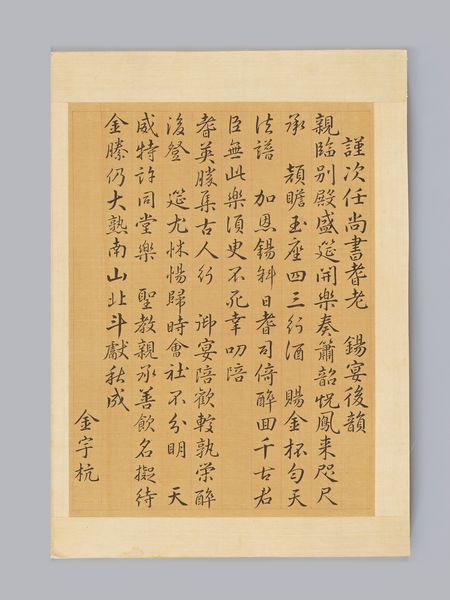 謹次任尚書耆老 錫宴後韻
親臨別殿盛筵開樂奏簫韶怳鳳来咫尺
承 顔瞻玉座四三行酒 賜金杯勻天
法譜 加恩錫斜日耆司倚醉回千古君
臣無此樂須臾不死幸叨陪
耆英勝集古人行 御宴陪歡較孰榮醉
後登 筵尤怵惕歸時會社不分明 天
威特許同堂樂 聖教親承善飲名擬待
金縢仍大熟南山北斗獻秋成
金宇杭